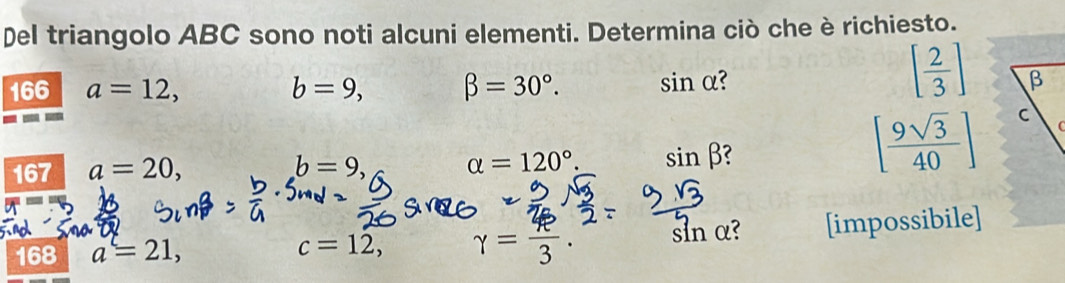 Del triangolo ABC sono noti alcuni elementi. Determina ciò che è richiesto.
166 a = 12, b = 9, β = 30°. sin α? [2/3]
β
c
167 a = 20, b = 9, α = 120°. sin β? [9√3/40]
sinβ = b/a · sinα = 9/20 = 9/20 √3/2 = 9√3
168 a = 21, c = 12, γ = π/3. sin α? [impossibile]